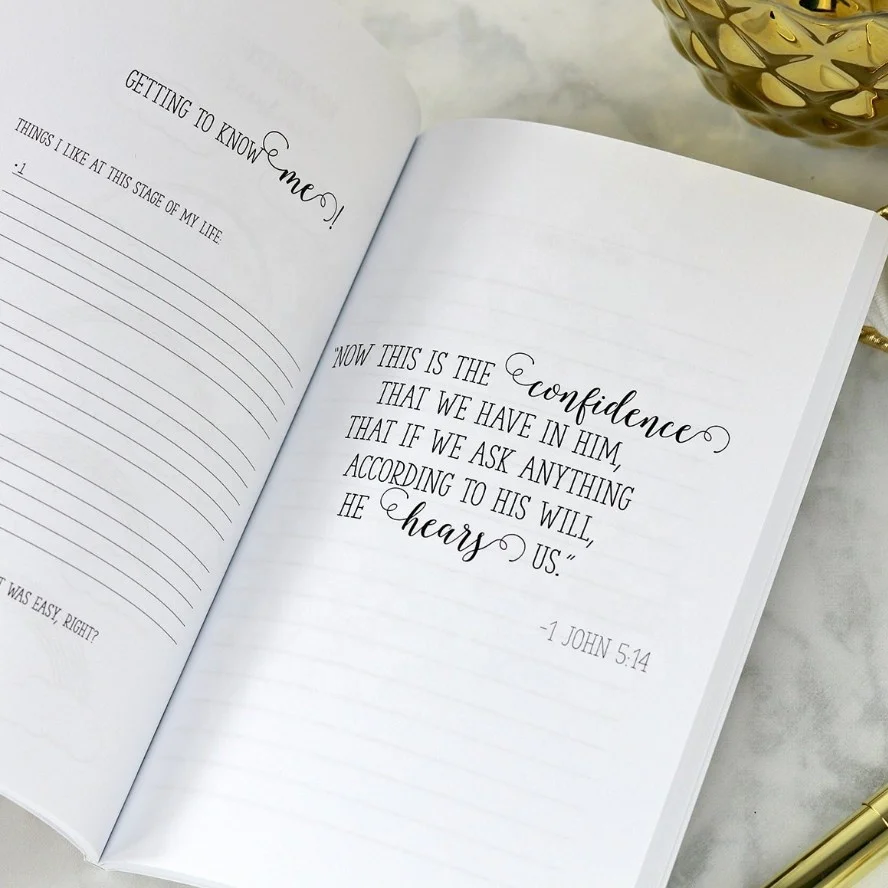 GETTING TO KNOW me!
THINGS I LIKE AT THIS STAGE OF MY LIFE:
•1
WAS EASY, RIGHT?
"NOW THIS IS THE confidence
THAT WE HAVE IN HIM,
THAT IF WE ASK ANYTHING
ACCORDING TO HIS WILL,
HE hears US."
-1 JOHN 5:14